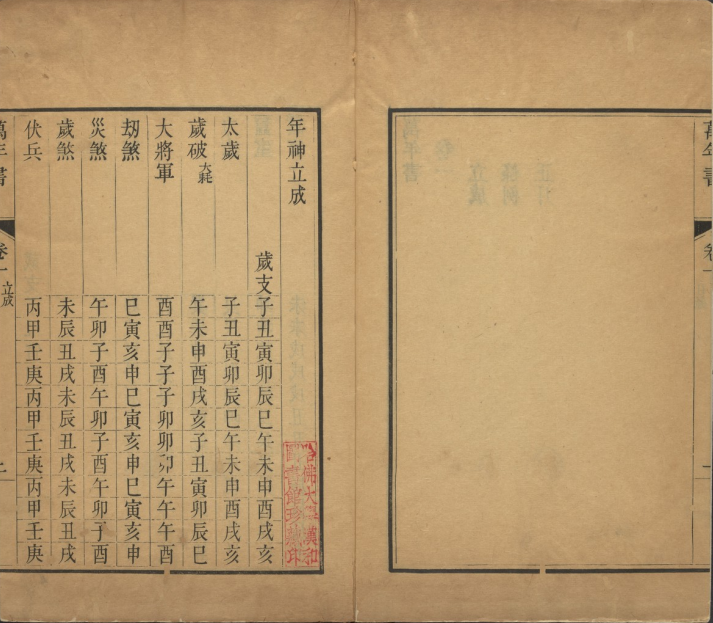 萬年書
卷
年神立成
歲支子丑寅卯辰巳午未申酉戌亥
太歲 子丑寅卯辰巳午未申酉戌亥
歲破大耗 午未申酉戌亥子丑寅卯辰巳
大將軍 酉酉子子子卯卯卯午午午酉
刼煞 巳寅亥申巳寅亥申巳寅亥申
災煞 午卯子酉午卯子酉午卯子酉
歲煞 未辰丑戌未辰丑戌未辰丑戌
伏兵 丙甲壬庚丙甲壬庚丙甲壬庚
萬年書
卷一 立成
哈佛大學漢和
圖書館珍藏印